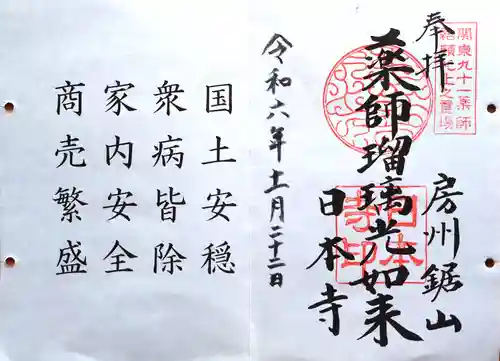 奉拝
関東九十一薬師
結願九十一之霊場
房州鋸山
薬師瑠璃光如来
日本寺
日本
寺印
令和六年十一月二十二日
国土安穏
衆病皆除
家内安全
商売繁盛